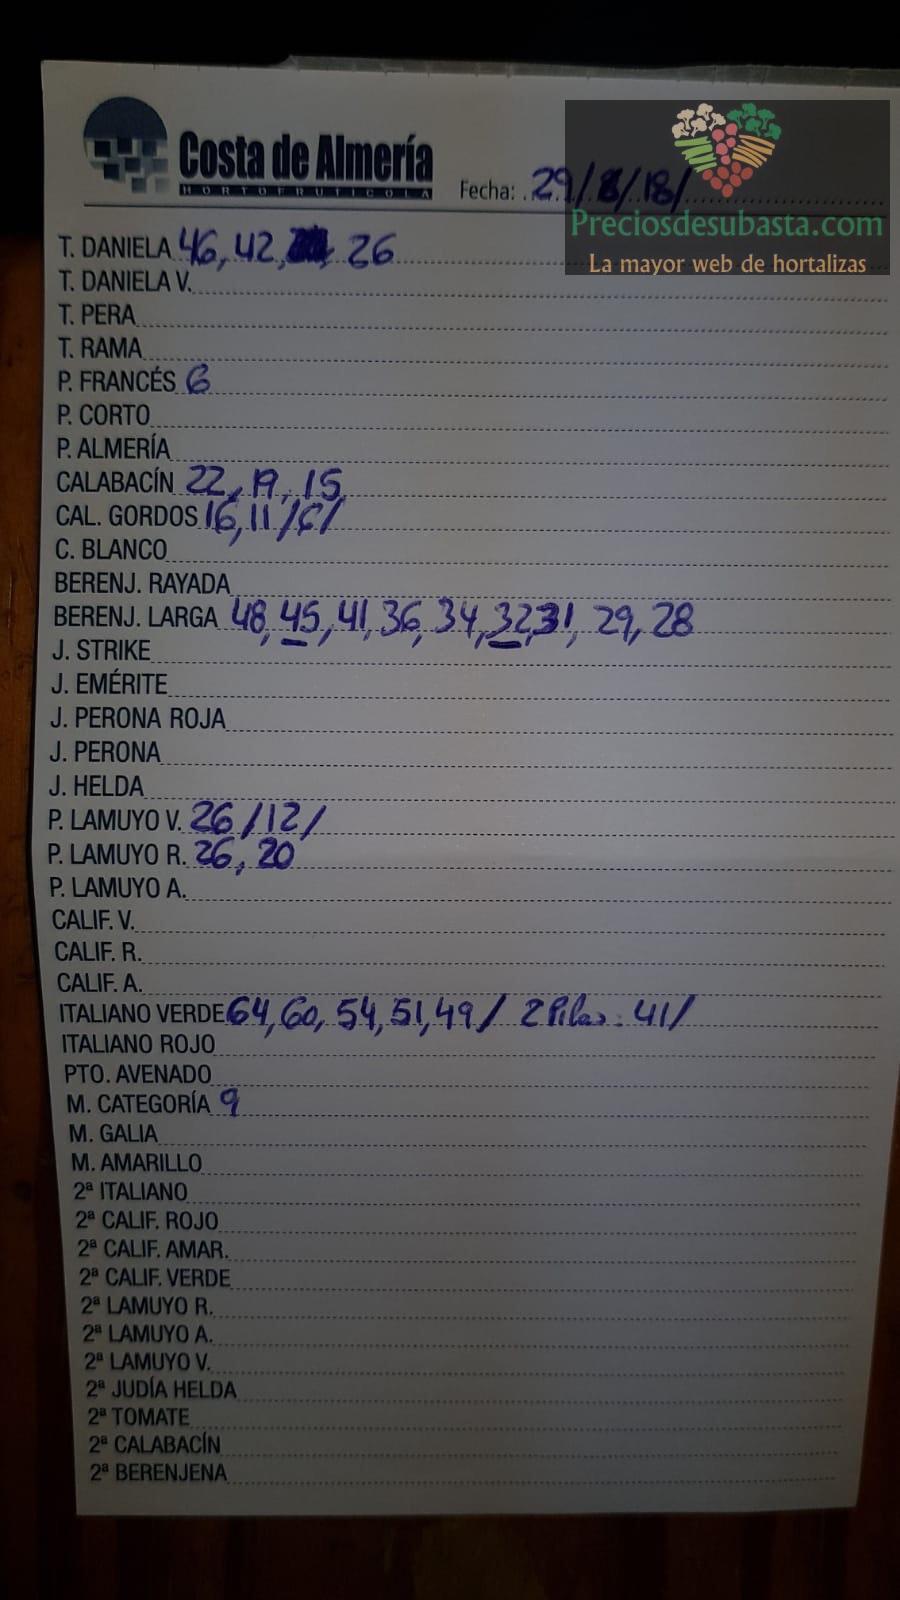 Costa de Almería
HORTOFRUTICOLA
Fecha: 29/8/18/
Preciosdesubasta.com
La mayor web de hortalizas
T. DANIELA 46, 42, 26
T. DANIELA V.
T. PERA
T. RAMA
P. FRANCÉS 6
P. CORTO
P. ALMERÍA
CALABACÍN 22, 19, 15
CAL. GORDOS 16, 11 /6/
C. BLANCO
BERENJ. RAYADA
BERENJ. LARGA 48, 45, 41, 36, 34, 32, 31, 29, 28
J. STRIKE
J. EMÉRITE
J. PERONA ROJA
J. PERONA
J. HELDA
P. LAMUYO V. 26 / 12 /
P. LAMUYO R. 26, 20
P. LAMUYO A.
CALIF. V.
CALIF. R.
CALIF. A.
ITALIANO VERDE 64, 60, 54, 51, 49 / 2 Pilas: 41 /
ITALIANO ROJO
PTO. AVENADO
M. CATEGORÍA 9
M. GALIA
M. AMARILLO
2ª ITALIANO
2ª CALIF. ROJO
2ª CALIF. AMAR.
2ª CALIF. VERDE
2ª LAMUYO R.
2ª LAMUYO A.
2ª LAMUYO V.
2ª JUDÍA HELDA
2ª TOMATE
2ª CALABACÍN
2ª BERENJENA